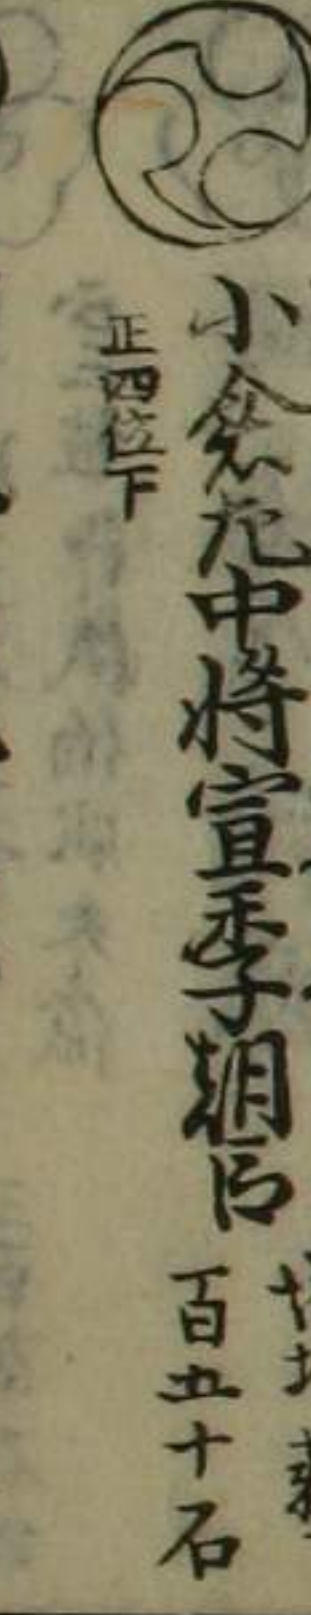 小倉左中將宣季朝臣
百五十石
正四位下